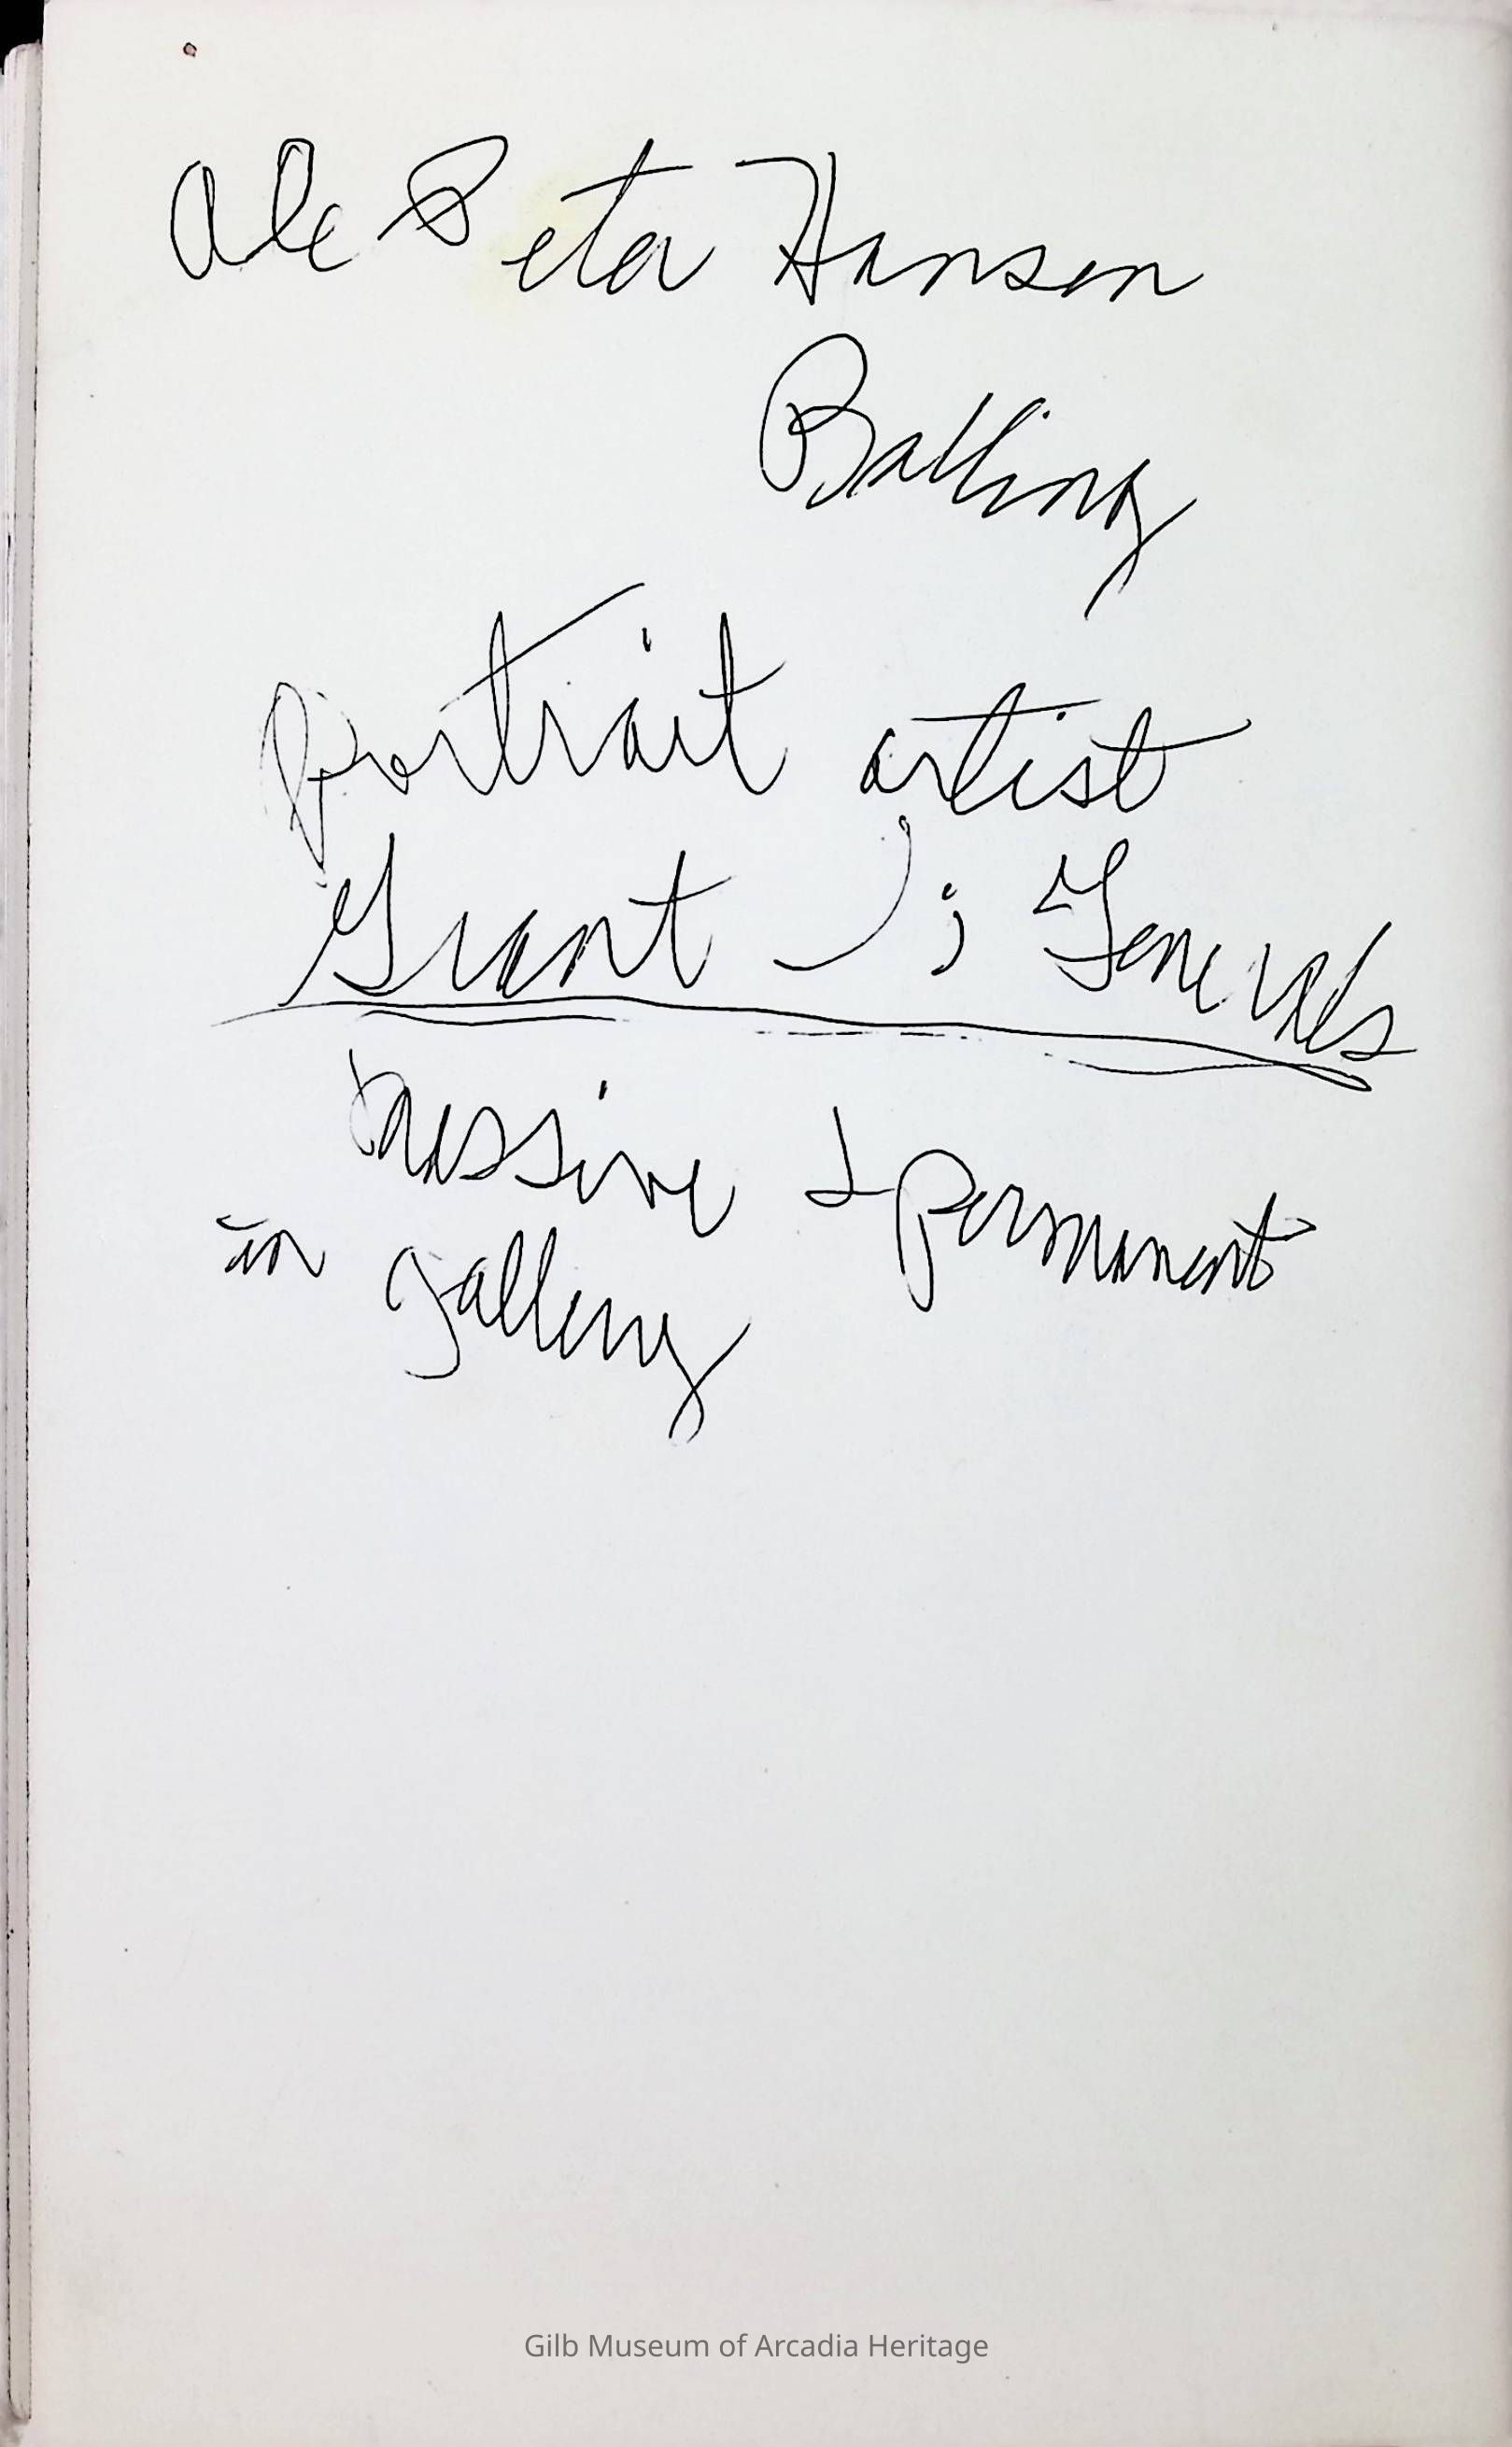 Ole Peter Hansen
Balling
portrait artist
Grant ; Generals
massive & permanent
in gallery
Gilb Museum of Arcadia Heritage